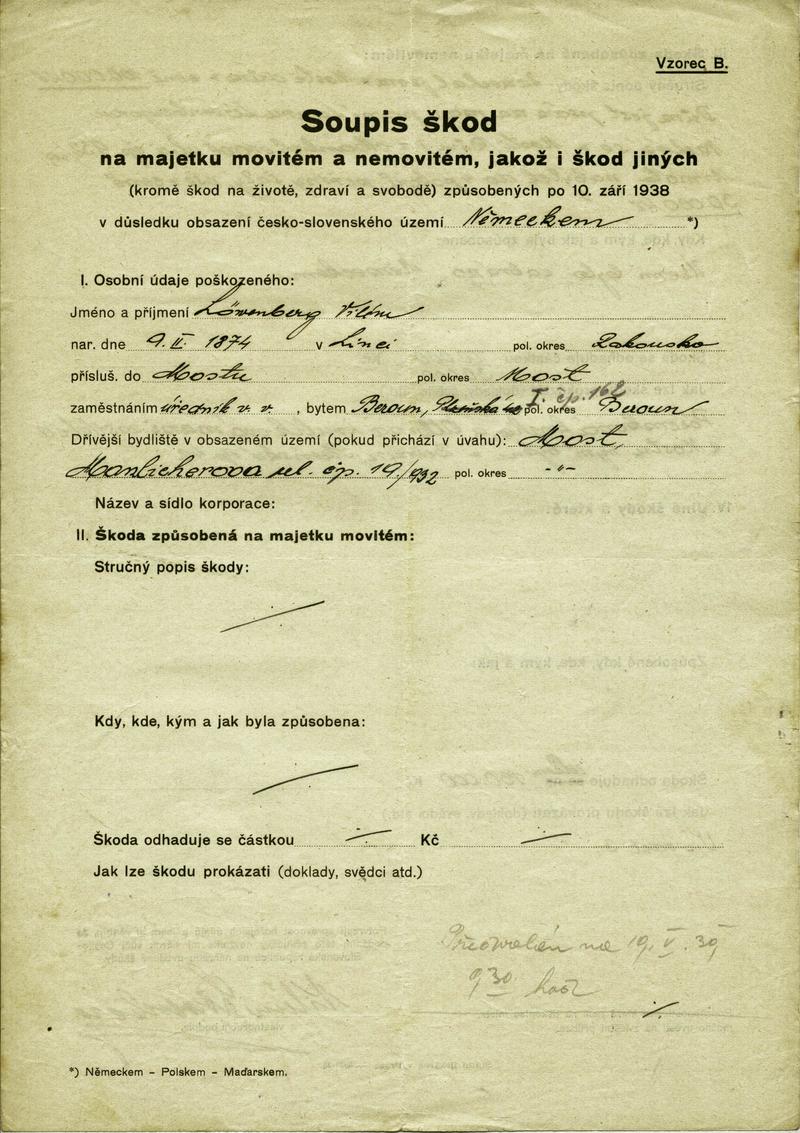 Vzorec B.
Soupis škod
na majetku movitém a nemovitém, jakož i škod jiných
(kromě škod na životě, zdraví a svobodě) způsobených po 10. září 1938
v důsledku obsazení česko-slovenského území Německem *)
I. Osobní údaje poškozeného:
Jméno a příjmení Löwenberg Vilém
nar. dne 9. II. 1874 v Linci pol. okres Rakousko
přísluš. do Mostu pol. okres Most
I. čp. 162
zaměstnáním úředník v. v. , bytem Beroun, pol. okres Beroun
Dřívější bydliště v obsazeném území (pokud přichází v úvahu): Most,
Manlicherova ul. čp. 19/932 pol. okres -"-
Název a sídlo korporace:
II. Škoda způsobená na majetku movitém:
Stručný popis škody:
Kdy, kde, kým a jak byla způsobena:
Škoda odhaduje se částkou Kč
Jak lze škodu prokázati (doklady, svědci atd.)
Předvolán na 19. V. 39
9 30 hod
*) Německem - Polskem - Maďarskem.